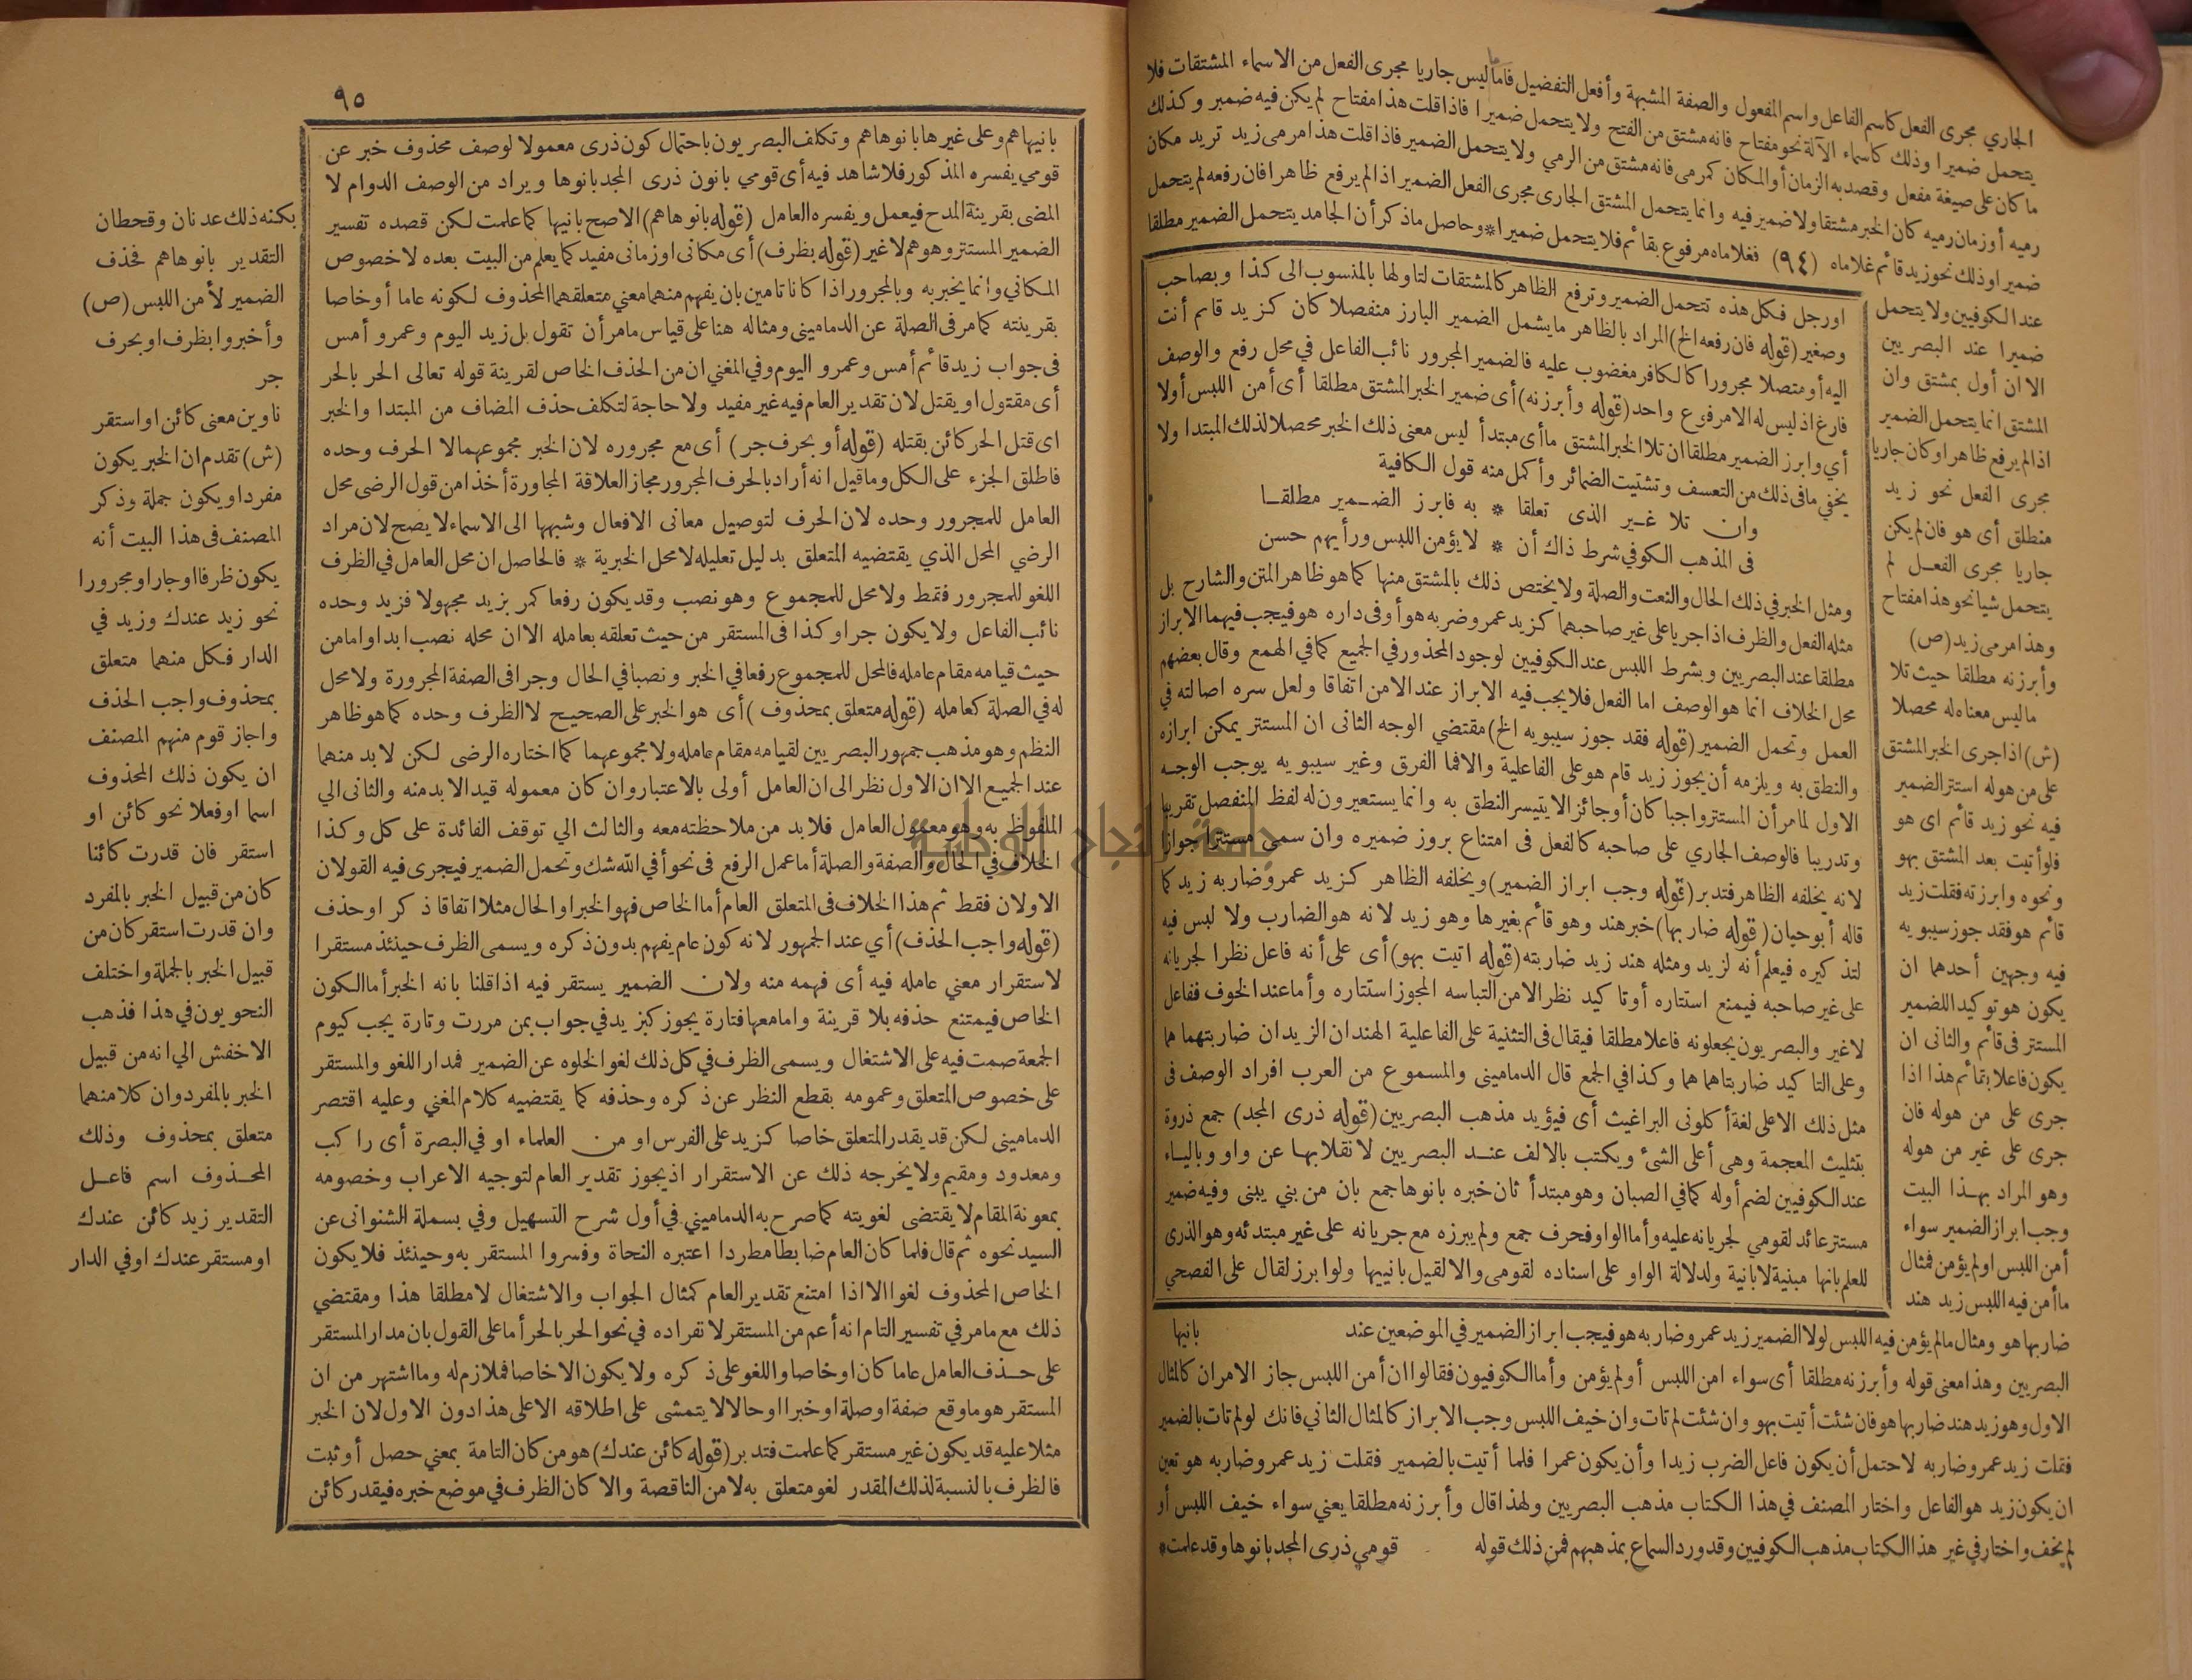 الجاري مجرى الفعل كاسم الفاعل واسم المفعول والصفة المشبهة وأفعل التفضيل فاما ما ليس جاريا مجرى الفعل من الاسماء المشتقات فلا
يتحمل ضميرا وذلك كاسماء الآلة نحو مفتاح فانه مشتق من الفتح ولا يتحمل ضميرا فاذا قلت هذا مفتاح لم يكن فيه ضمير وكذلك
ما كان على صيغة مفعل وقصد به الزمان أو المكان كمرمى فانه مشتق من الرمي ولا يتحمل الضمير فاذا قلت هذا مرمى زيد تريد مكان
رميه أو زمان رميه كان الخبر مشتقا ولا ضمير فيه وانما يتحمل المشتق الجارى مجرى الفعل الضمير اذا لم يرفع ظاهرا فان رفعه لم يتحمل
ضميرا وذلك نحو زيد قائم غلاماه (٩٤) فغلاماه مرفوع بقائم فلا يتحمل ضميرا * وحاصل ما ذكر أن الجامد يتحمل الضمير مطلقا
عند الكوفيين ولا يتحمل
ضميرا عند البصريين
الا ان أول بمشتق وان
المشتق انما يتحمل الضمير
اذا لم يرفع ظاهرا وكان جاريا
مجرى الفعل نحو زيد
منطلق أى هو فان لم يكن
جاريا مجرى الفعل لم
يتحمل شيا نحو هذا مفتاح
وهذا مرمى زيد (ص)
وأبرزنه مطلقا حيث تلا
ما ليس معناه له محصلا
(ش) اذا جرى الخبر المشتق
على من هو له استتر الضمير
فيه نحو زيد قائم اى هو
فلو أتيت بعد المشتق بهو
ونحوه وابرزته فقلت زيد
قائم هو فقد جوز سيبويه
فيه وجهين أحدهما ان
يكون هو توكيدا للضمير
المستتر فى قائم والثانى ان
يكون فاعلا بقائم هذا اذا
جرى على من هو له فان
جرى على غير من هو له
وهو المراد بهذا البيت
وجب ابراز الضمير سواء
أمن اللبس اولم يؤمن فمثال
ما أمن فيه اللبس زيد هند
اورجل فكل هذه تتحمل الضمير وترفع الظاهر كالمشتقات لتاولها بالمنسوب الى كذا وبصاحب
وصغير (قوله فان رفعه الخ) المراد بالظاهر ما يشمل الضمير البارز منفصلا كان كزيد قام أنت
اليه أو متصلا مجرورا كالكافر مغضوب عليه فالضمير المجرور نائب الفاعل في محل رفع والوصف
فارغ اذ ليس له الا مرفوع واحد (قوله وأبرزنه) أى ضمير الخبر المشتق مطلقا أى أمن اللبس أولا
أي وابرز الضمير مطلقا ان تلا الخبر المشتق ما أى مبتدأ ليس معنى ذلك الخبر محصلا لذلك المبتدا ولا
يخفي ما فى ذلك من التعسف وتشتيت الضمائر وأكمل منه قول الكافية
وان تلا غير الذى تعلقا * به فابرز الضمير مطلقا
فى المذهب الكوفي شرط ذاك أن * لا يؤمن اللبس ورأيهم حسن
ومثل الخبر في ذلك الحال والنعت والصلة ولا يختص ذلك بالمشتق منها كما هو ظاهر المتن والشارح بل
مثله الفعل والظرف اذا جريا على غير صاحبهما كزيد عمرو ضربه هو أو فى داره هو فيجب فيهما الابراز
مطلقا عند البصريين وبشرط اللبس عند الكوفيين لوجود المحذور في الجميع كما في الهمع وقال بعضهم
محل الخلاف انما هو الوصف اما الفعل فلا يجب فيه الابراز عند الامن اتفاقا ولعل سره اصالته في
العمل وتحمل الضمير (قوله فقد جوز سيبويه الخ) مقتضي الوجه الثانى ان المستتر يمكن ابرازه
والنطق به ويلزمه أن يجوز زيد قام هو على الفاعلية والافما الفرق وغير سيبويه يوجب الوجه
الاول لما مر أن المستتر واجبا كان أو جائزا لا يتيسر النطق به وانما يستعيرون له لفظ المنفصل تقريبا
وتدريبا فالوصف الجاري على صاحبه كالفعل فى امتناع بروز ضميره وان سمى مستترا جوازا
لانه يخلفه الظاهر فتدبر (قوله وجب ابراز الضمير) ويخلفه الظاهر كزيد عمرو ضاربه زيد كما
قاله أبوحيان (قوله ضاربها) خبر هند وهو قائم بغيرها وهو زيد لانه هو الضارب ولا لبس فيه
لتذكيره فيعلم أنه لزيد ومثله هند زيد ضاربته (قوله اتيت بهو) أى على أنه فاعل نظرا لجريانه
على غير صاحبه فيمنع استتاره أو تاكيد نظرا لامن التباسه المجوز استتاره وأما عند الخوف ففاعل
لا غير والبصريون يجعلونه فاعلا مطلقا فيقال فى التثنية على الفاعلية الهندان الزيدان ضاربتهما هما
وعلى التاكيد ضاربتاهما هما وكذا في الجمع قال الدماميني والمسموع من العرب افراد الوصف فى
مثل ذلك الا على لغة أكلونى البراغيث أى فيؤيد مذهب البصريين (قوله ذرى المجد) جمع ذروة
بتثليث المعجمة وهى أعلى الشئ ويكتب بالالف عند البصريين لانقلابها عن واو وبالياء
عند الكوفيين لضم أوله كما في الصبان وهو مبتدأ ثان خبره بانوها جمع بان من بني يبنى وفيه ضمير
مستتر عائد لقومي لجريانه عليه وأما الواو فحرف جمع ولم يبرزه مع جريانه على غير مبتدئه وهو الذرى
للعلم بانها مبنية لا بانية ولدلالة الواو على اسناده لقومى والا لقيل بانييها ولو ابرز لقال على الفصحي
ضاربها هو ومثال ما لم يؤمن فيه اللبس لولا الضمير زيد عمرو ضاربه هو فيجب ابراز الضمير في الموضعين عند بانيها
البصريين وهذا معنى قوله وأبرزنه مطلقا أى سواء امن اللبس أو لم يؤمن وأما الكوفيون فقالوا ان أمن اللبس جاز الامران كالمثال
الاول وهو زيد هند ضاربها هو فان شئت أتيت بهو وان شئت لم تات وان خيف اللبس وجب الابراز كالمثال الثاني فانك لو لم تات بالضمير
فقلت زيد عمرو ضاربه لاحتمل أن يكون فاعل الضرب زيدا وأن يكون عمرا فلما أتيت بالضمير فقلت زيد عمرو ضاربه هو تعين
ان يكون زيد هو الفاعل واختار المصنف في هذا الكتاب مذهب البصريين ولهذا قال وأبرزنه مطلقا يعني سواء خيف اللبس أو
لم يخف واختار في غير هذا الكتاب مذهب الكوفيين وقد ورد السماع بمذهبهم فمن ذلك قوله قومي ذرى المجد بانوها وقد علمت *
٩٥
بانيها هم وعلى غيرها بانوها هم وتكلف البصريون باحتمال كون ذرى معمولا لوصف محذوف خبر عن
قومي يفسره المذكور فلا شاهد فيه أى قومي بانون ذرى المجد بانوها ويراد من الوصف الدوام لا
المضى بقرينة المدح فيعمل ويفسره العامل (قوله بانوها هم) الاصح بانيها كما علمت لكن قصده تفسير
الضمير المستتر وهو هم لا غير (قوله بظرف) أى مكانى اوزمانى مفيد كما يعلم من البيت بعده لا خصوص
المكاني وانما يخبر به وبالمجرور اذا كانا تامين بان يفهم منهما معني متعلقهما المحذوف لكونه عاما أو خاصا
بقرينته كما مر فى الصلة عن الدمامينى ومثاله هنا على قياس ما مر أن تقول بل زيد اليوم وعمرو أمس
فى جواب زيد قائم أمس وعمرو اليوم وفي المغني ان من الحذف الخاص لقرينة قوله تعالى الحر بالحر
أى مقتول او يقتل لان تقدير العام فيه غير مفيد ولا حاجة لتكلف حذف المضاف من المبتدا والخبر
اى قتل الحر كائن بقتله (قوله أو بحرف جر) أى مع مجروره لان الخبر مجموعهما لا الحرف وحده
فاطلق الجزء على الكل وما قيل انه أراد بالحرف المجرور مجاز العلاقة المجاورة أخذا من قول الرضى محل
العامل للمجرور وحده لان الحرف لتوصيل معانى الافعال وشبهها الى الاسماء لا يصح لان مراد
الرضي المحل الذي يقتضيه المتعلق بدليل تعليله لا محل الخبرية * فالحاصل ان محل العامل في الظرف
اللغو للمجرور فقط ولا محل للمجموع وهو نصب وقد يكون رفعا كمر بزيد مجهولا فزيد وحده
نائب الفاعل ولا يكون جرا وكذا فى المستقر من حيث تعلقه بعامله الا ان محله نصب ابدا واما من
حيث قيامه مقام عامله فالمحل للمجموع رفعا في الخبر ونصبا في الحال وجرا فى الصفة المجرورة ولا محل
له في الصلة كعامله (قوله متعلق بمحذوف) أى هو الخبر على الصحيح لا الظرف وحده كما هو ظاهر
النظم وهو مذهب جمهور البصريين لقيامه مقام عامله ولا مجموعهما كما اختاره الرضى لكن لا بد منهما
عند الجميع الا ان الاول نظر الى ان العامل أولى بالاعتبار وان كان معموله قيدا لا بد منه والثانى الي
الملفوظ به وهو معمول العامل فلا بد من ملاحظته معه والثالث الي توقف الفائدة على كل وكذا
الخلاف في الحال والصفة والصلة أما عمل الرفع فى نحو أفي الله شك وتحمل الضمير فيجرى فيه القولان
الاولان فقط ثم هذا الخلاف فى المتعلق العام أما الخاص فهو الخبر او الحال مثلا اتفاقا ذكر او حذف
(قوله واجب الحذف) أي عند الجمهور لانه كون عام يفهم بدون ذكره ويسمى الظرف حينئذ مستقرا
لاستقرار معني عامله فيه أى فهمه منه ولان الضمير يستقر فيه اذا قلنا بانه الخبر أما الكون
الخاص فيمتنع حذفه بلا قرينة واما معها فتارة يجوز كبزيد في جواب بمن مررت وتارة يجب كيوم
الجمعة صمت فيه على الاشتغال ويسمى الظرف في كل ذلك لغوا لخلوه عن الضمير فمدار اللغو والمستقر
على خصوص المتعلق وعمومه بقطع النظر عن ذكره وحذفه كما يقتضيه كلام المغني وعليه اقتصر
الدمامينى لكن قد يقدر المتعلق خاصا كزيد على الفرس او من العلماء او في البصرة أى راكب
ومعدود ومقيم ولا يخرجه ذلك عن الاستقرار اذ يجوز تقدير العام لتوجيه الاعراب وخصومه
بمعونة المقام لا يقتضى لغويته كما صرح به الدماميني في أول شرح التسهيل وفي بسملة الشنوانى عن
السيد نحوه ثم قال فلما كان العام ضابطا مطردا اعتبره النحاة وفسروا المستقر به وحينئذ فلا يكون
الخاص المحذوف لغوا الا اذا امتنع تقدير العام كمثال الجواب والاشتغال لا مطلقا هذا ومقتضي
ذلك مع ما مر في تفسير التام انه أعم من المستقر لانفراده في نحو الحر بالحر أما على القول بان مدار المستقر
على حذف العامل عاما كان او خاصا واللغو على ذكره ولا يكون الا خاصا فملازم له وما اشتهر من ان
المستقر هو ما وقع صفة او صلة او خبرا او حالا لا يتمشى على اطلاقه الا على هذا دون الاول لان الخبر
مثلا عليه قد يكون غير مستقر كما علمت فتدبر (قوله كائن عندك) هو من كان التامة بمعني حصل أو ثبت
فالظرف بالنسبة لذلك المقدر لغو متعلق به لا من الناقصة والا كان الظرف في موضع خبره فيقدر كائن
بكنه ذلك عدنان وقحطان
التقدير بانوها هم فحذف
الضمير لأمن اللبس (ص)
وأخبروا بظرف او بحرف
جر
ناوين معنى كائن او استقر
(ش) تقدم ان الخبر يكون
مفردا ويكون جملة وذكر
المصنف فى هذا البيت أنه
يكون ظرفا او جارا ومجرورا
نحو زيد عندك وزيد في
الدار فكل منهما متعلق
بمحذوف واجب الحذف
واجاز قوم منهم المصنف
ان يكون ذلك المحذوف
اسما اوفعلا نحو كائن او
استقر فان قدرت كائنا
كان من قبيل الخبر بالمفرد
وان قدرت استقر كان من
قبيل الخبر بالجملة واختلف
النحويون في هذا فذهب
الاخفش الي انه من قبيل
الخبر بالمفرد وان كلا منهما
متعلق بمحذوف وذلك
المحذوف اسم فاعل
التقدير زيد كائن عندك
او مستقر عندك اوفي الدار
جامعة النجاح الوطنية